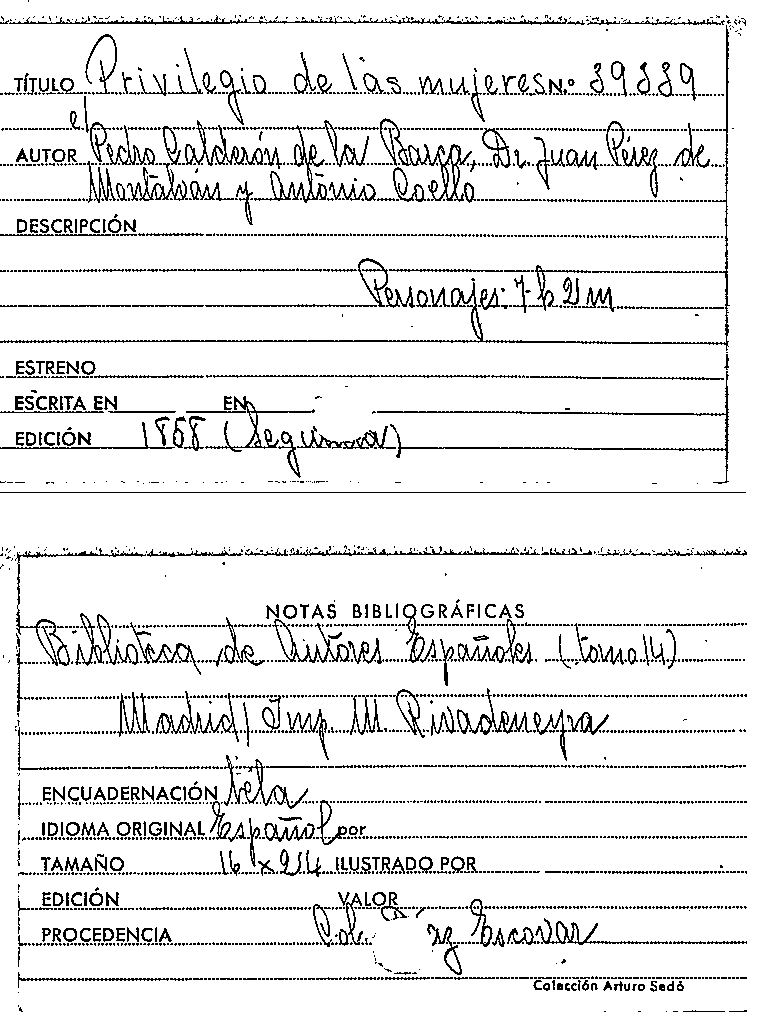 TÍTULO Privilegio de las mujeres N.º 39339
el
AUTOR Pedro Calderón de la Barca, Dr. Juan Pérez de
Montalván y Antonio Coello
DESCRIPCIÓN
Personajes: 7 h 2 m
ESTRENO
ESCRITA EN EN
EDICIÓN 1858 (Segunda)
NOTAS BIBLIOGRÁFICAS
Biblioteca de Autores Españoles (tomo 14)
Madrid / Imp. M. Rivadeneyra
ENCUADERNACIÓN tela
IDIOMA ORIGINAL Español por
TAMAÑO 16 x 24 ILUSTRADO POR
EDICIÓN VALOR
PROCEDENCIA Col. Escovar
Colección Arturo Sedó